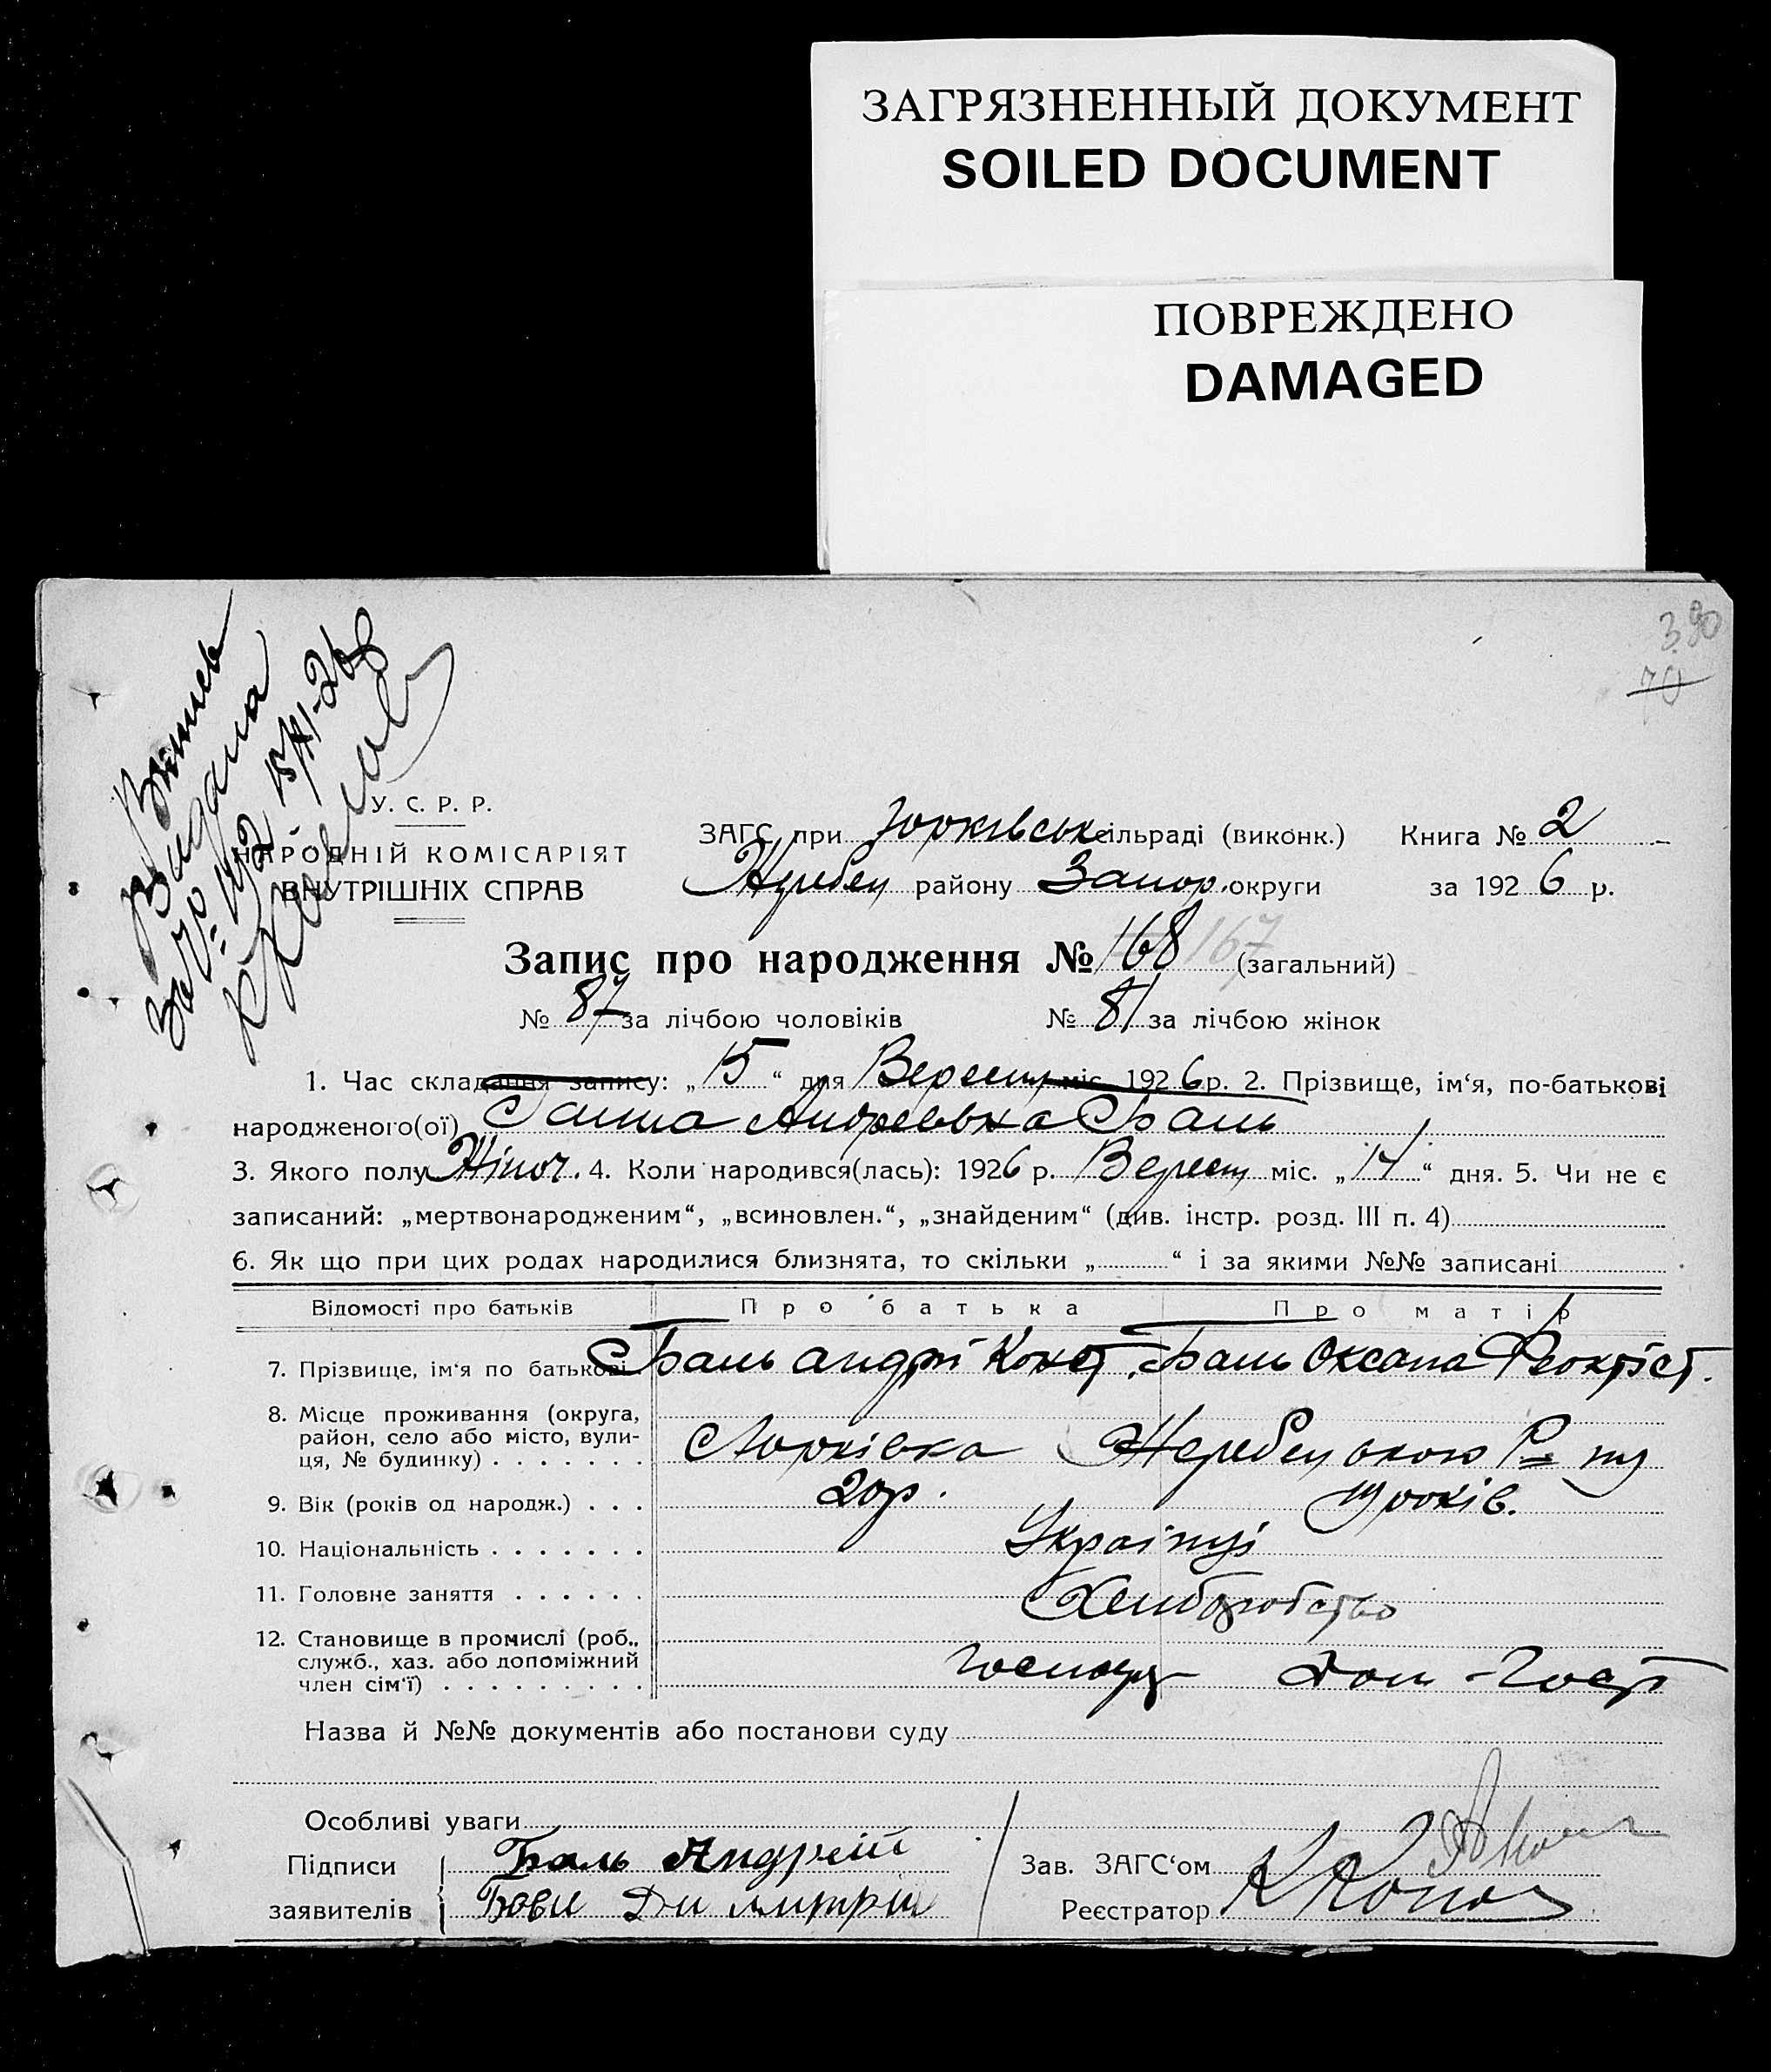 ЗАГРЯЗНЕННЫЙ ДОКУМЕНТ
SOILED DOCUMENT
ПОВРЕЖДЕНО
DAMAGED
390
70
Витяг
Видана
за № 192 15/XI-26р
У. С. Р. Р.
НАРОДНІЙ КОМІСАРІЯТ
ВНУТРІШНІХ СПРАВ
ЗАГС при Юрківськ сільраді (виконк.) Книга № 2
Жеребец району Запор. округи за 1926 р.
Запис про народження № 168 167 (загальний)
№ 87 за лічбою чоловіків № 81 за лічбою жінок
1. Час складання запису: „15“ дня Вересня міс. 1926 р. 2. Прізвище, ім‘я, по-батькові
народженого(ої) Ганна Андреевна Баль
3. Якого полу Жіноч. 4. Коли народився(лась): 1926 р. Вересн міс. „14“ дня. 5. Чи не є
записаний: „мертвонародженим“, „всиновлен.“, „знайденим“ (див. інстр. розд. III п. 4)
6. Як що при цих родах народилися близнята, то скільки „ “ і за якими №№ записані
Відомості про батьків Про батька Про матір
7. Прізвище, ім‘я по батькові Баль Андрі Конст. Баль Оксана Феоктіст.
8. Місце проживання (округа,
район, село або місто, вули-
ця, № будинку) Юрківка Жеребецького Р-ну
9. Вік (років од народж.) 20р. 19 років.
10. Національність Українці
11. Головне заняття Хлиборобство
12. Становище в промислі (роб.,
служб., хаз. або допоміжний
член сім‘ї) Господ Дом-Госп
Назва й №№ документів або постанови суду
Особливі уваги
Підписи Баль Андрей
заявителів Дмитрий
Зав. ЗАГС‘ом
Реєстратор